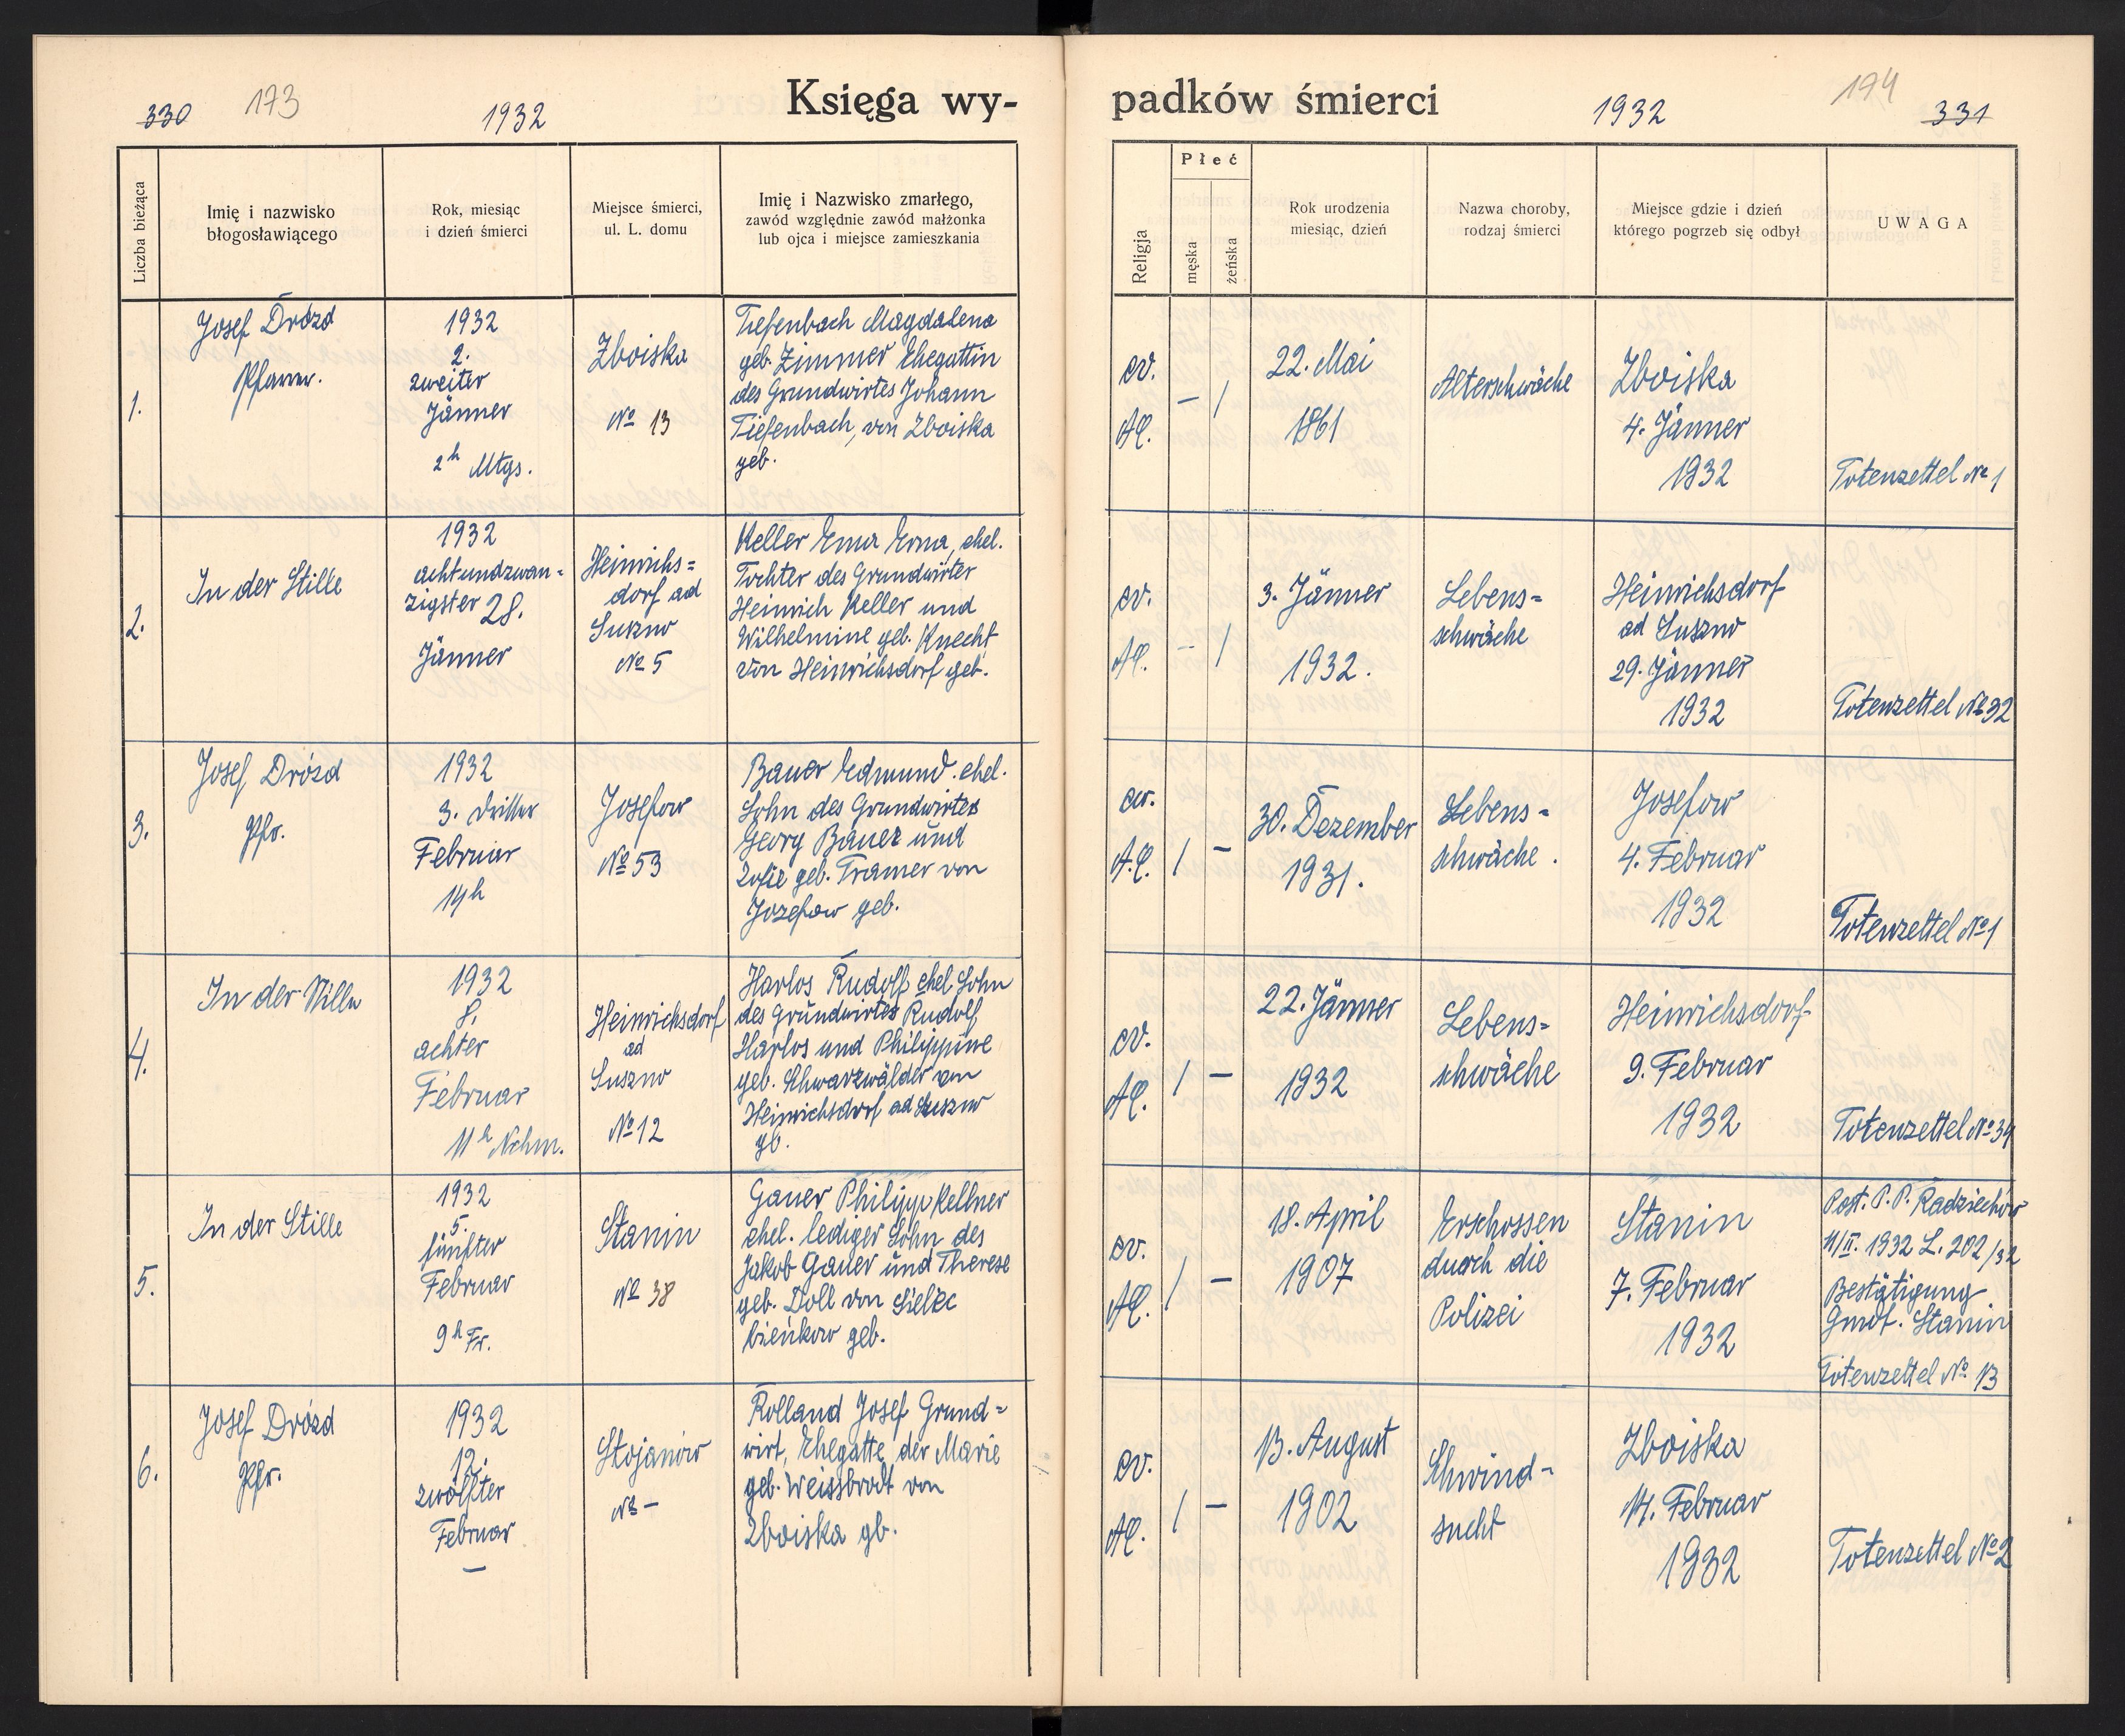 330 173 1932 Księga wy-
Liczba bieżąca
Imię i nazwisko
błogosławiącego
Rok, miesiąc
i dzień śmierci
Miejsce śmierci,
ul. L. domu
Imię i Nazwisko zmarłego,
zawód względnie zawód małżonka
lub ojca i miejsce zamieszkania
1.
Josef Drózd
Pfarrer.
1932
2.
zweiter
Jänner
2h Mtgs.
Zboiska
No 13
Tiefenbach Magdalena
geb. Zimmer Ehegattin
des Grundwirtes Johann
Tiefenbach, von Zboiska
geb.
2.
In der Stille
1932
achtundzwan=
zigster 28.
Jänner
Heinrichs=
dorf ad
Suszno
No 5
Keller Erna, ehel.
Tochter des Grundwirter
Heinrich Keller und
Wilhelmine geb. Knecht
von Heinrichsdorf geb.
3.
Josef Drózd
Pfr.
1932
3. dritter
Februar
14h
Josefow
No 53
Bauer Edmund. ehel.
Sohn des Grundwirtes
Georg Bauer und
Zofie geb. Tramer von
Jozefow geb.
4.
In der Stille
1932
8.
achter
Februar
11h Nchm.
Heinrichsdorf
ad
Suszno
No 12
Harlos Rudolf ehel. Sohn
des Grundwirtes Rudolf
Harlos und Philippine
geb. Schwarzwälder von
Heinrichsdorf ad Suszno
gb.
5.
In der Stille
1932
5.
fünfter
Februar
9h Fr.
Stanin
No 38
Gauer Philipp Kellner
ehel. lediger Sohn des
Jakob Gauer und Therese
geb. Doll von Sielec
bieńkow geb.
6.
Josef Drózd
Pfr.
1932
12.
zwölfter
Februar
—
Stojanów
No —
Rolland Josef Grund=
wirt, Ehegatte der Marie
geb. Weissbrodt von
Zboiska gb.
padków śmierci 1932 194 331
Religja
Płeć
męska
żeńska
Rok urodzenia
miesiąc, dzień
Nazwa choroby,
rodzaj śmierci
Miejsce gdzie i dzień
którego pogrzeb się odbył
UWAGA
ev.
AC.
— /
22. Mai
1861
Alterschwäche
Zboiska
4. Jänner
1932
Totenzettel No 1
ev.
AC.
— /
3. Jänner
1932.
Lebens=
schwäche
Heinrichsdorf
ad Suszno
29. Jänner
1932
Totenzettel No 32
ev.
A.C.
/ —
30. Dezember
1931.
Lebens=
schwäche.
Josefow
4. Februar
1932
Totenzettel No 1
ev.
AC.
/ —
22. Jänner
1932
Lebens=
schwäche
Heinrichsdorf
9. Februar
1932
Totenzettel No 34
ev.
AC.
/ —
18. April
1907
Erschossen
durch die
Polizei
Stanin
7. Februar
1932
Post. P. P. Radziechów
11/II. 1932 L. 202/32
Bestätigung
Gmdt. Stanin
Totenzettel No 13
ev.
AC.
/ —
13. August
1902
Schwind=
sucht
Zboiska
14. Februar
1932
Totenzettel No 2